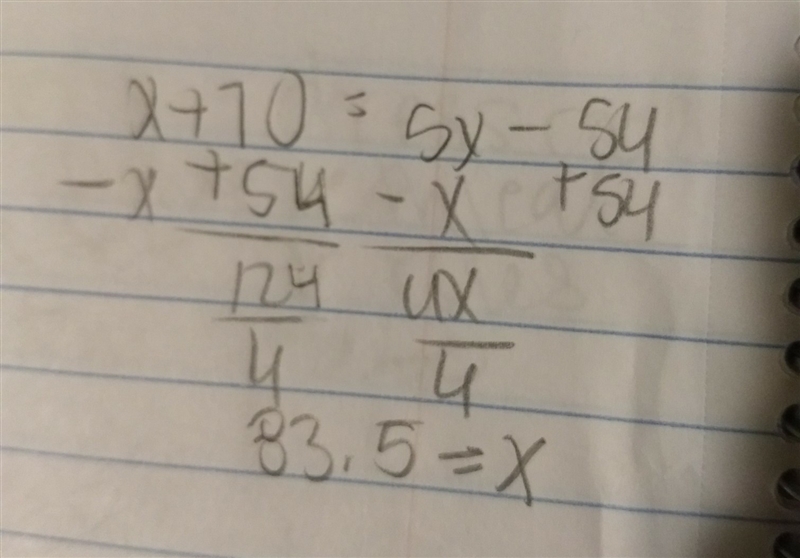 x+70 = 5x - 54
-x +54 -x +54
124 4x
4 4
83.5 = x